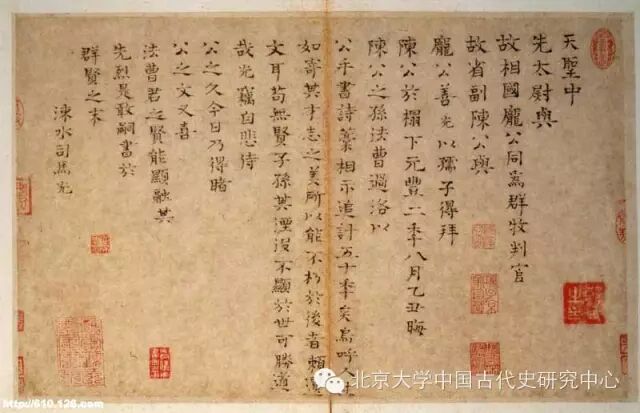 天聖中
先太尉與
故相國龐公同為群牧判官
故省副陳公與
龐公善光以孺子得拜
陳公於榻下元豐二秊八月乙丑晦
陳公之孫法曹過洛以
公手書詩藁相示追計五十秊矣嗚呼人
如寄其才志之美所以能不朽於後者賴遺
文耳苟無賢子孫其湮沒不顯於世可勝道
哉光竊自悲侍
公之久今日乃得睹
公之文又喜
法曹君之賢能顯融其
先烈是敢嗣書於
群賢之末
涑水司馬光
北京大学中国古代史研究中心
http://610.126.com/